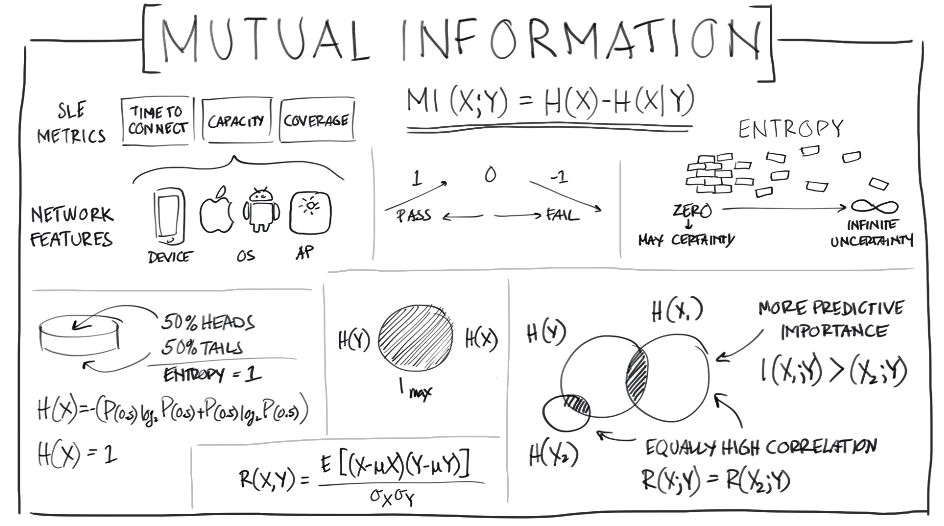 MUTUAL INFORMATION
SLE
METRICS
TIME TO
CONNECT
CAPACITY
COVERAGE
NETWORK
FEATURES
DEVICE
OS
AP
MI (X;Y) = H(X)-H(X|Y)
1
0
-1
PASS
FAIL
ENTROPY
ZERO
MAX CERTAINTY
INFINITE
UNCERTAINTY
50% HEADS
50% TAILS
ENTROPY = 1
H(X)=-(P(0.5) log₂ P(0.5)+P(0.5) log₂ P(0.5))
H(X) = 1
H(Y)
H(X)
I max
R(X,Y) = E [(X-μX)(Y-μY)]
σXσY
H(Y)
H(X,)
H(X₂)
MORE PREDICTIVE
IMPORTANCE
I(X,;Y) > (X₂;Y)
EQUALLY HIGH CORRELATION
R(X;Y) = R(X₂;Y)